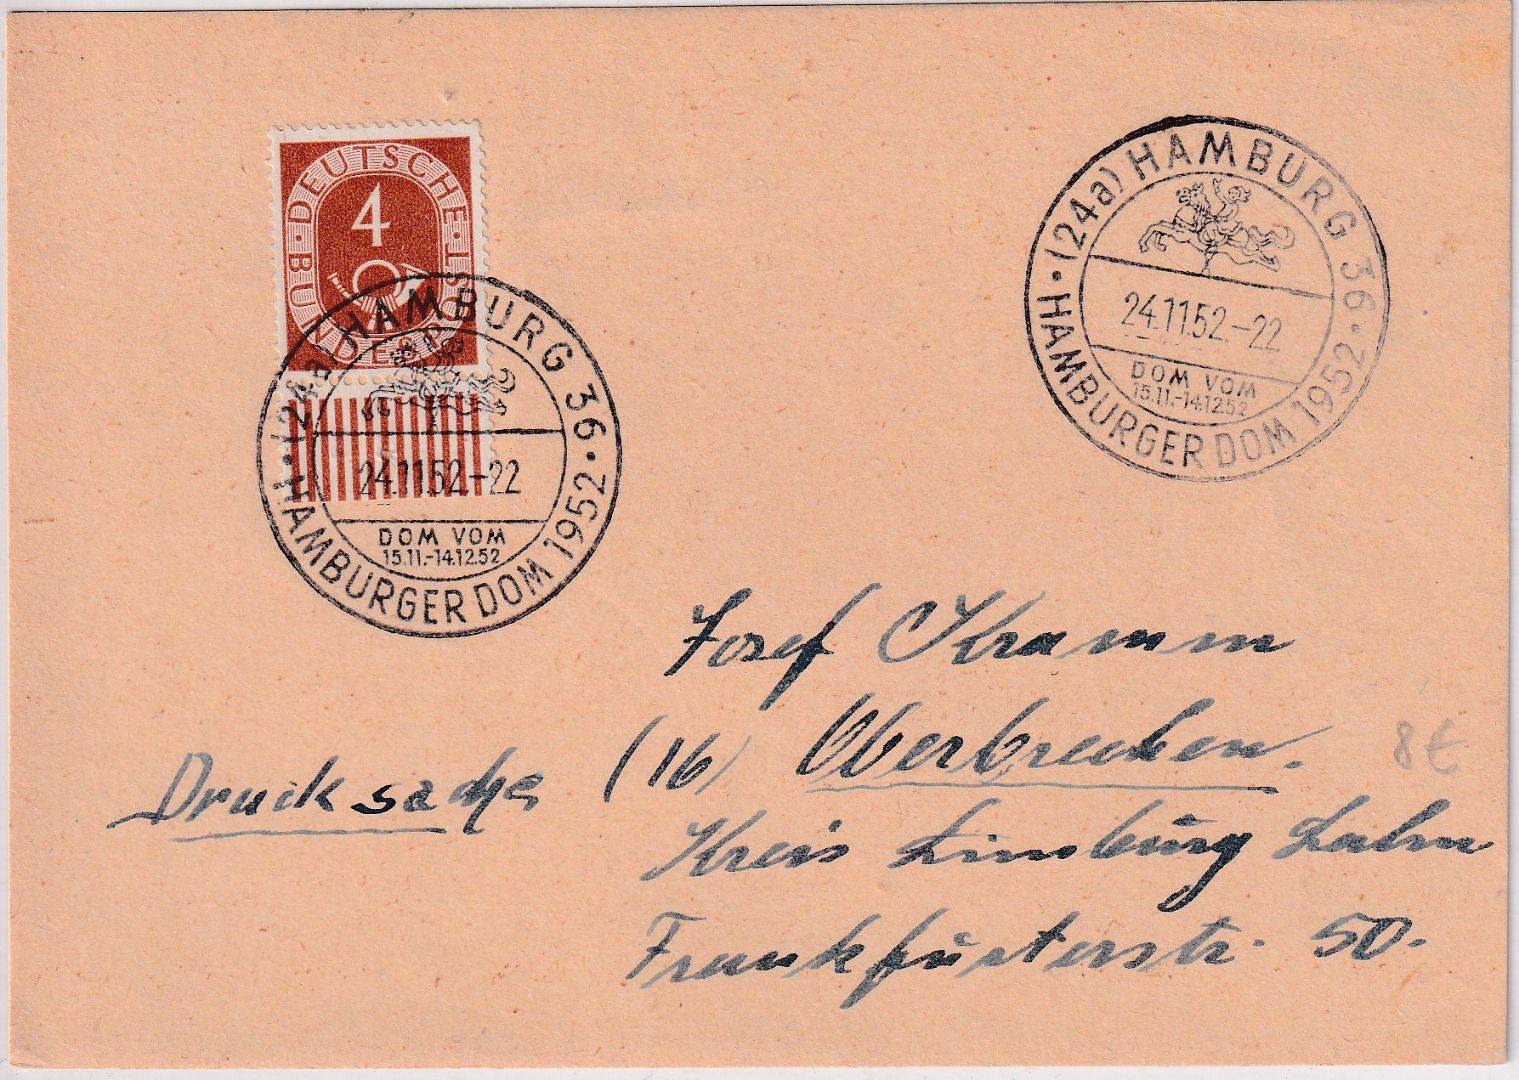 DEUTSCHE BUNDESPOST
4
(24a) HAMBURG 36
24.11.52.-22
DOM VOM
15.11.-14.12.52
HAMBURGER DOM 1952
(24a) HAMBURG 36
24.11.52.-22
DOM VOM
15.11.-14.12.52
HAMBURGER DOM 1952
Drucksache
Josef Kramm
(16) Oberbrechen.
8€
Kreis Limburg Lahn
Frankfurterstr. 50.